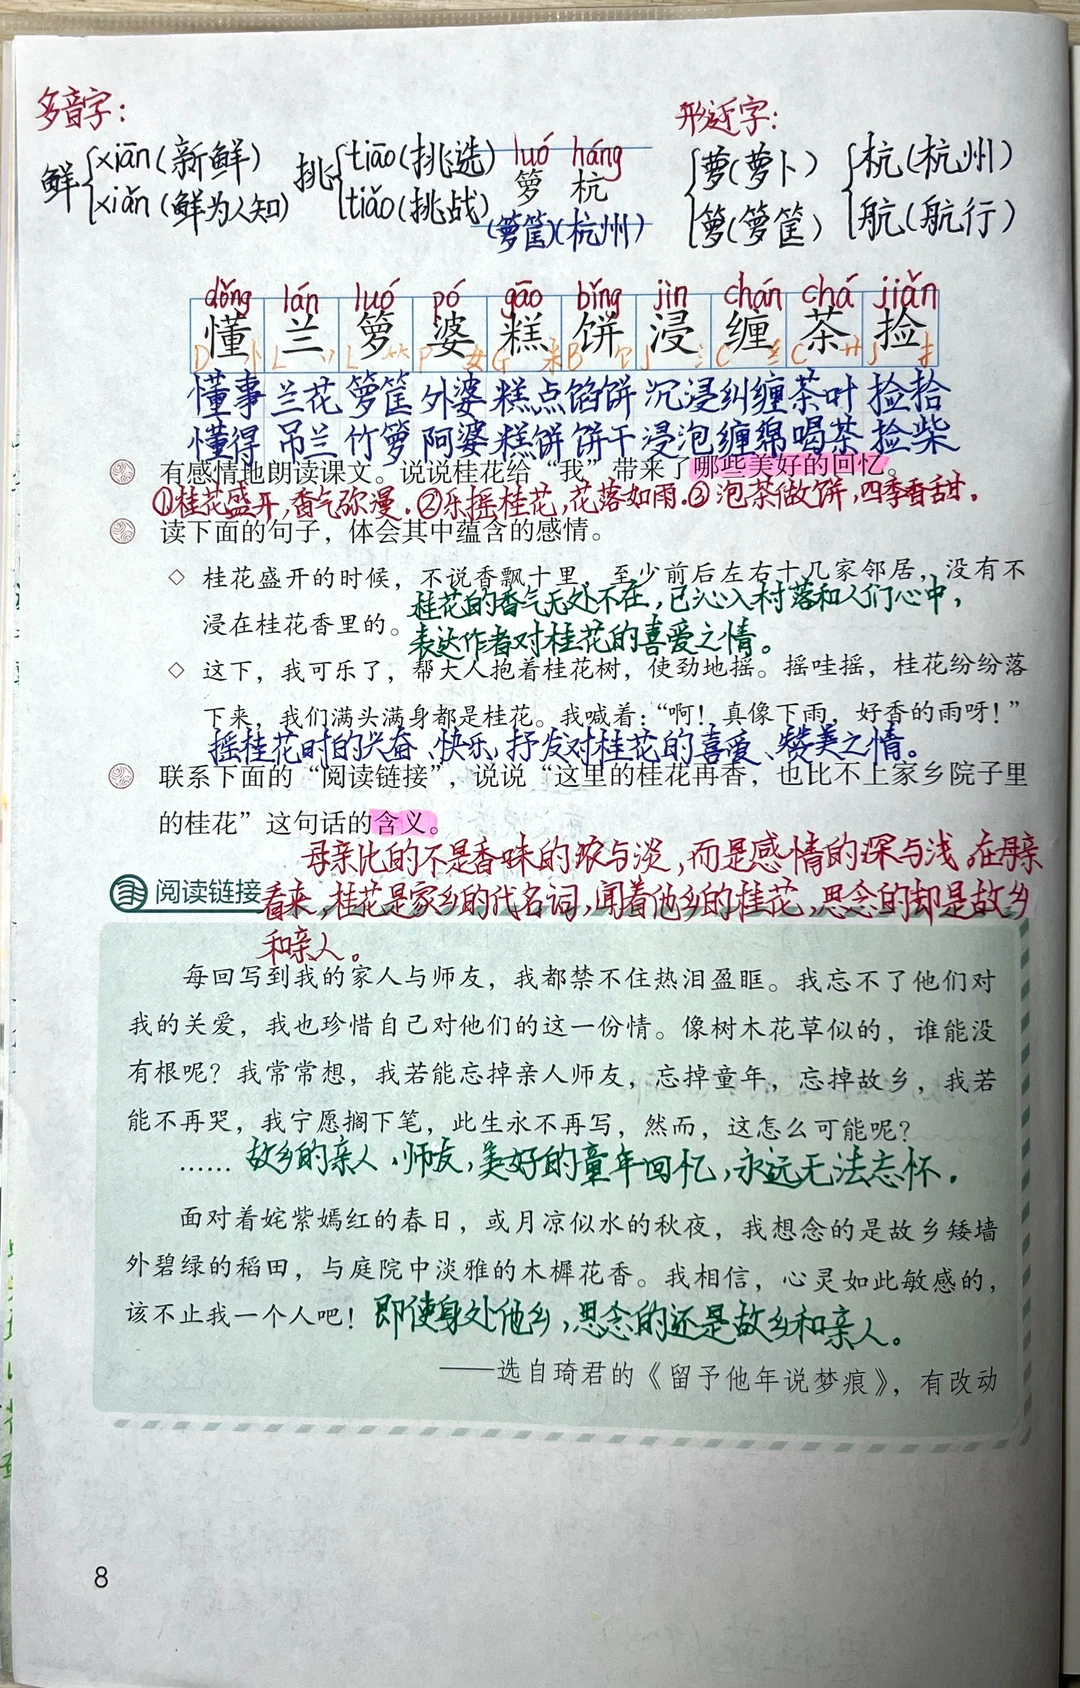 多音字：
形近字：
鲜 xiān(新鲜) 挑 tiāo(挑选) luó háng 萝(萝卜) 杭(杭州)
xiǎn(鲜为人知) tiǎo(挑战) 箩 杭 箩(箩筐) 航(航行)
(箩筐)(杭州)
dǒng lán luó pó gāo bǐng jìn chán chá jiǎn
懂 兰 箩 婆 糕 饼 浸 缠 茶 捡
D 忄 L 丷 L ⺮ P 女 G 米 B 饣 J 氵 C 纟 C 艹 J 扌
懂事 兰花 箩筐 外婆 糕点 馅饼 沉浸 纠缠 茶叶 捡拾
懂得 吊兰 竹箩 阿婆 糕饼 饼干 浸泡 缠绵 喝茶 捡柴
有感情地朗读课文。说说桂花给“我”带来了哪些美好的回忆。
①桂花盛开,香气弥漫.②乐摇桂花,花落如雨.③泡茶做饼,四季香甜.
读下面的句子，体会其中蕴含的感情。
◇ 桂花盛开的时候，不说香飘十里，至少前后左右十几家邻居，没有不
桂花的香气无处不在,已沁入村落和人们心中,
浸在桂花香里的。
表达作者对桂花的喜爱之情。
◇ 这下，我可乐了，帮大人抱着桂花树，使劲地摇。摇哇摇，桂花纷纷落
下来，我们满头满身都是桂花。我喊着：“啊！真像下雨，好香的雨呀！”
摇桂花时的兴奋、快乐,抒发对桂花的喜爱、赞美之情。
联系下面的“阅读链接”，说说“这里的桂花再香，也比不上家乡院子里
的桂花”这句话的含义。
母亲比的不是香味的浓与淡,而是感情的深与浅。在母亲
阅读链接
看来,桂花是家乡的代名词,闻着他乡的桂花,思念的却是故乡
和亲人。
每回写到我的家人与师友，我都禁不住热泪盈眶。我忘不了他们对
我的关爱，我也珍惜自己对他们的这一份情。像树木花草似的，谁能没
有根呢？我常常想，我若能忘掉亲人师友，忘掉童年，忘掉故乡，我若
能不再哭，我宁愿搁下笔，此生永不再写，然而，这怎么可能呢？
…… 故乡的亲人、师友,美好的童年回忆,永远无法忘怀.
面对着姹紫嫣红的春日，或月凉似水的秋夜，我想念的是故乡矮墙
外碧绿的稻田，与庭院中淡雅的木樨花香。我相信，心灵如此敏感的，
该不止我一个人吧！ 即使身处他乡,思念的还是故乡和亲人。
——选自琦君的《留予他年说梦痕》，有改动
8